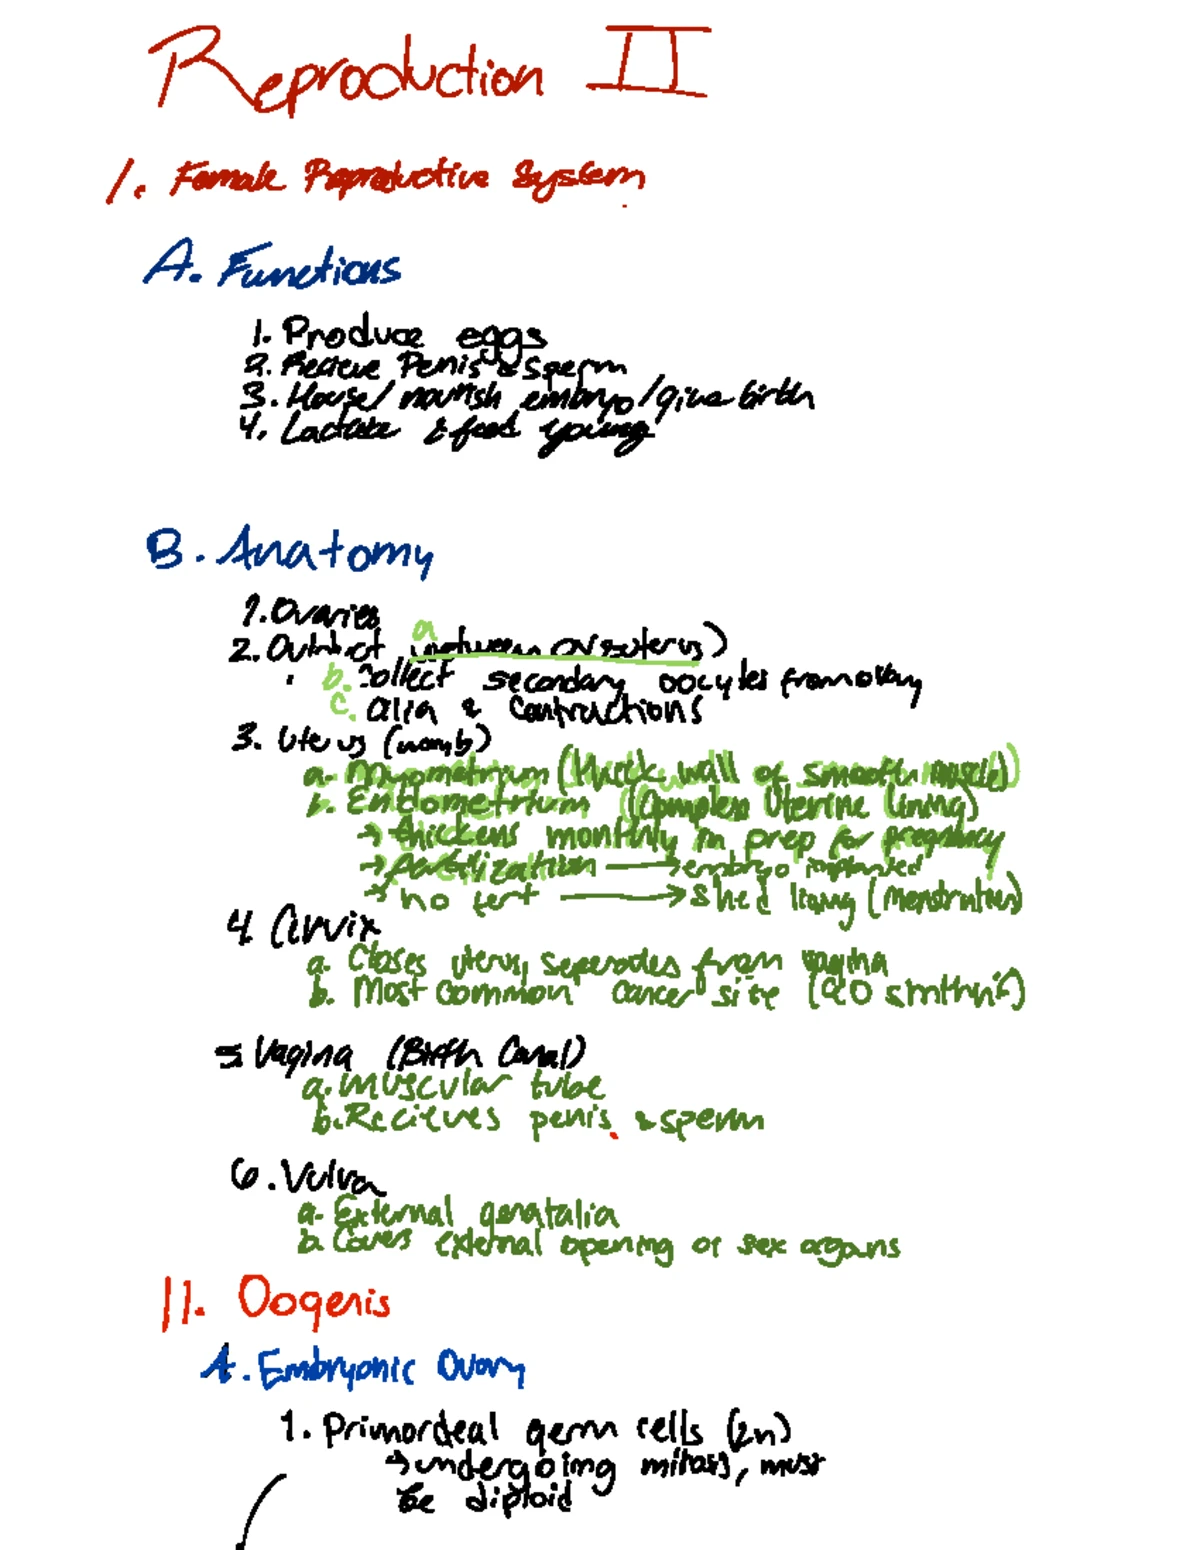 Reproduction II
1. Female Reproductive System
A. Functions
1. Produce eggs
2. Recieve Penis & sperm
3. House/ nourish embryo/give birth
4. Lactate & feed young
B. Anatomy
1. Ovaries
2. Oviduct a (between ov & uterus)
b. Collect secondary oocytes from ovary
c. cilia & Contructions
3. Uterus (womb)
a. Myometrium (thick wall of smooth muscle)
b. Endometrium (Complex Uterine Lining)
→ thickens monthly in prep for pregnancy
→ fertilization → embryo implanted
→ no fert → shed lining (Menstruation)
4. Cervix
a. Closes uterus, seperates from vagina
b. Most common cancer site
5 Vagina (Birth Canal)
a. muscular tube
b. Recieves penis & sperm
6. Vulva
a. External genatalia
b. Covers external opening of sex organs
II. Oogenis
A. Embryonic Ovary
1. Primordeal germ cells (2n)
→ undergoing mitosis, must
be diploid